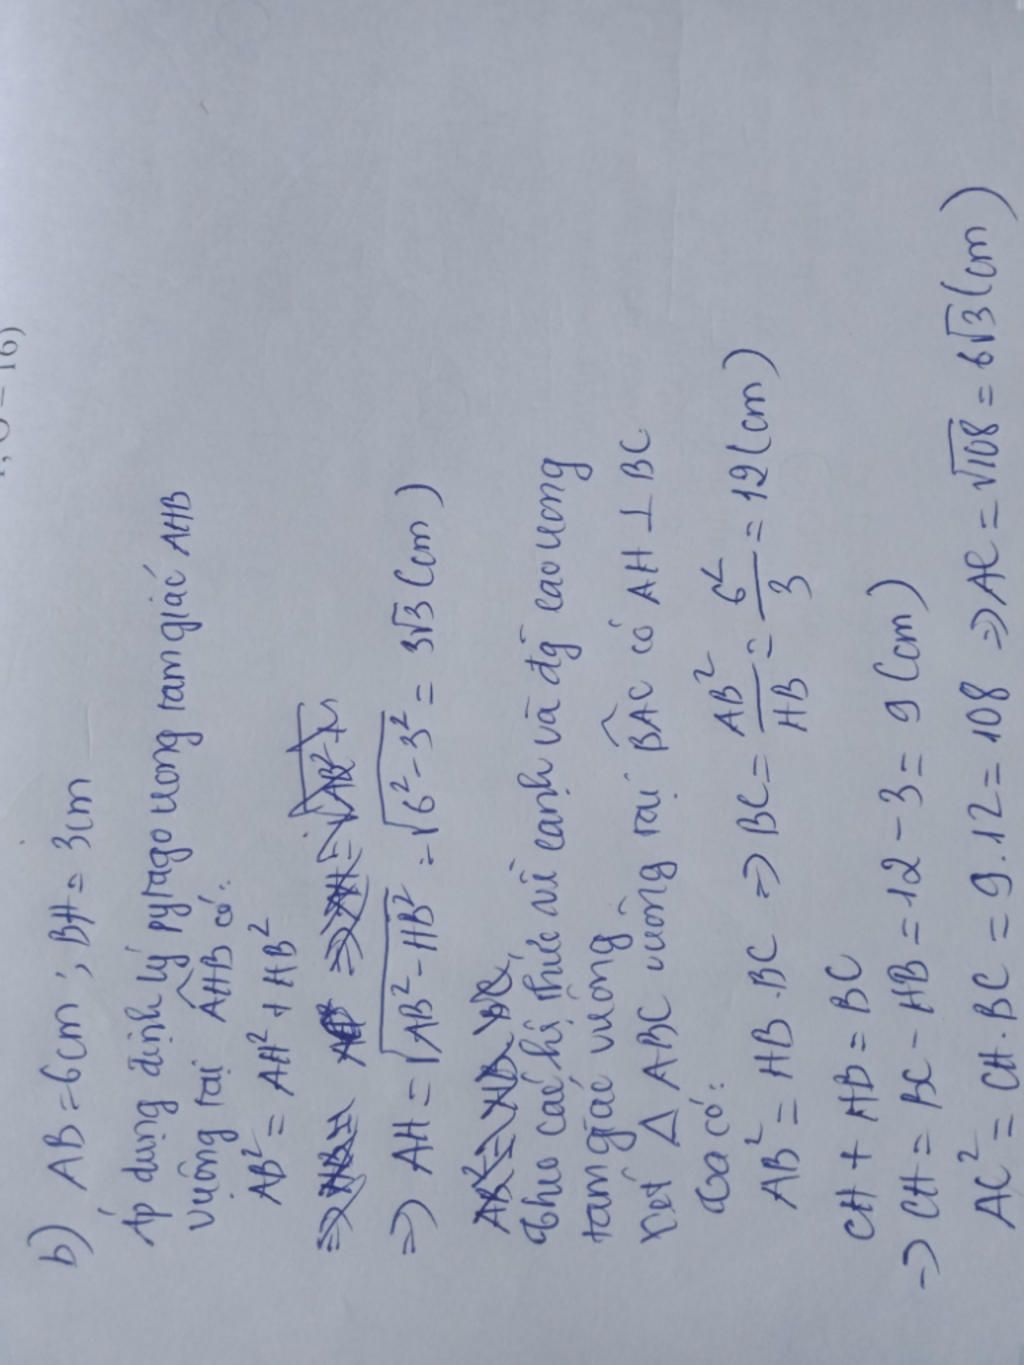 = 16)
b) AB = 6cm ; BH = 3cm
Áp dụng định lý pytago trong tam giác AHB
vuông tại AHB có:
AB² = AH² + HB²
=> AH = √AB² - HB² = √6² - 3² = 3√3 (cm)
Theo các hệ thức về cạnh và đg cao trong
tam giác vuông
Xét △ ABC vuông tại BAC có AH ⊥ BC
Ta có:
AB² = HB . BC => BC = AB²/HB = 6²/3 = 12 (cm)
CH + HB = BC
=> CH = BC - HB = 12 - 3 = 9 (cm)
AC² = CH . BC = 9 . 12 = 108 => AC = √108 = 6√3 (cm)